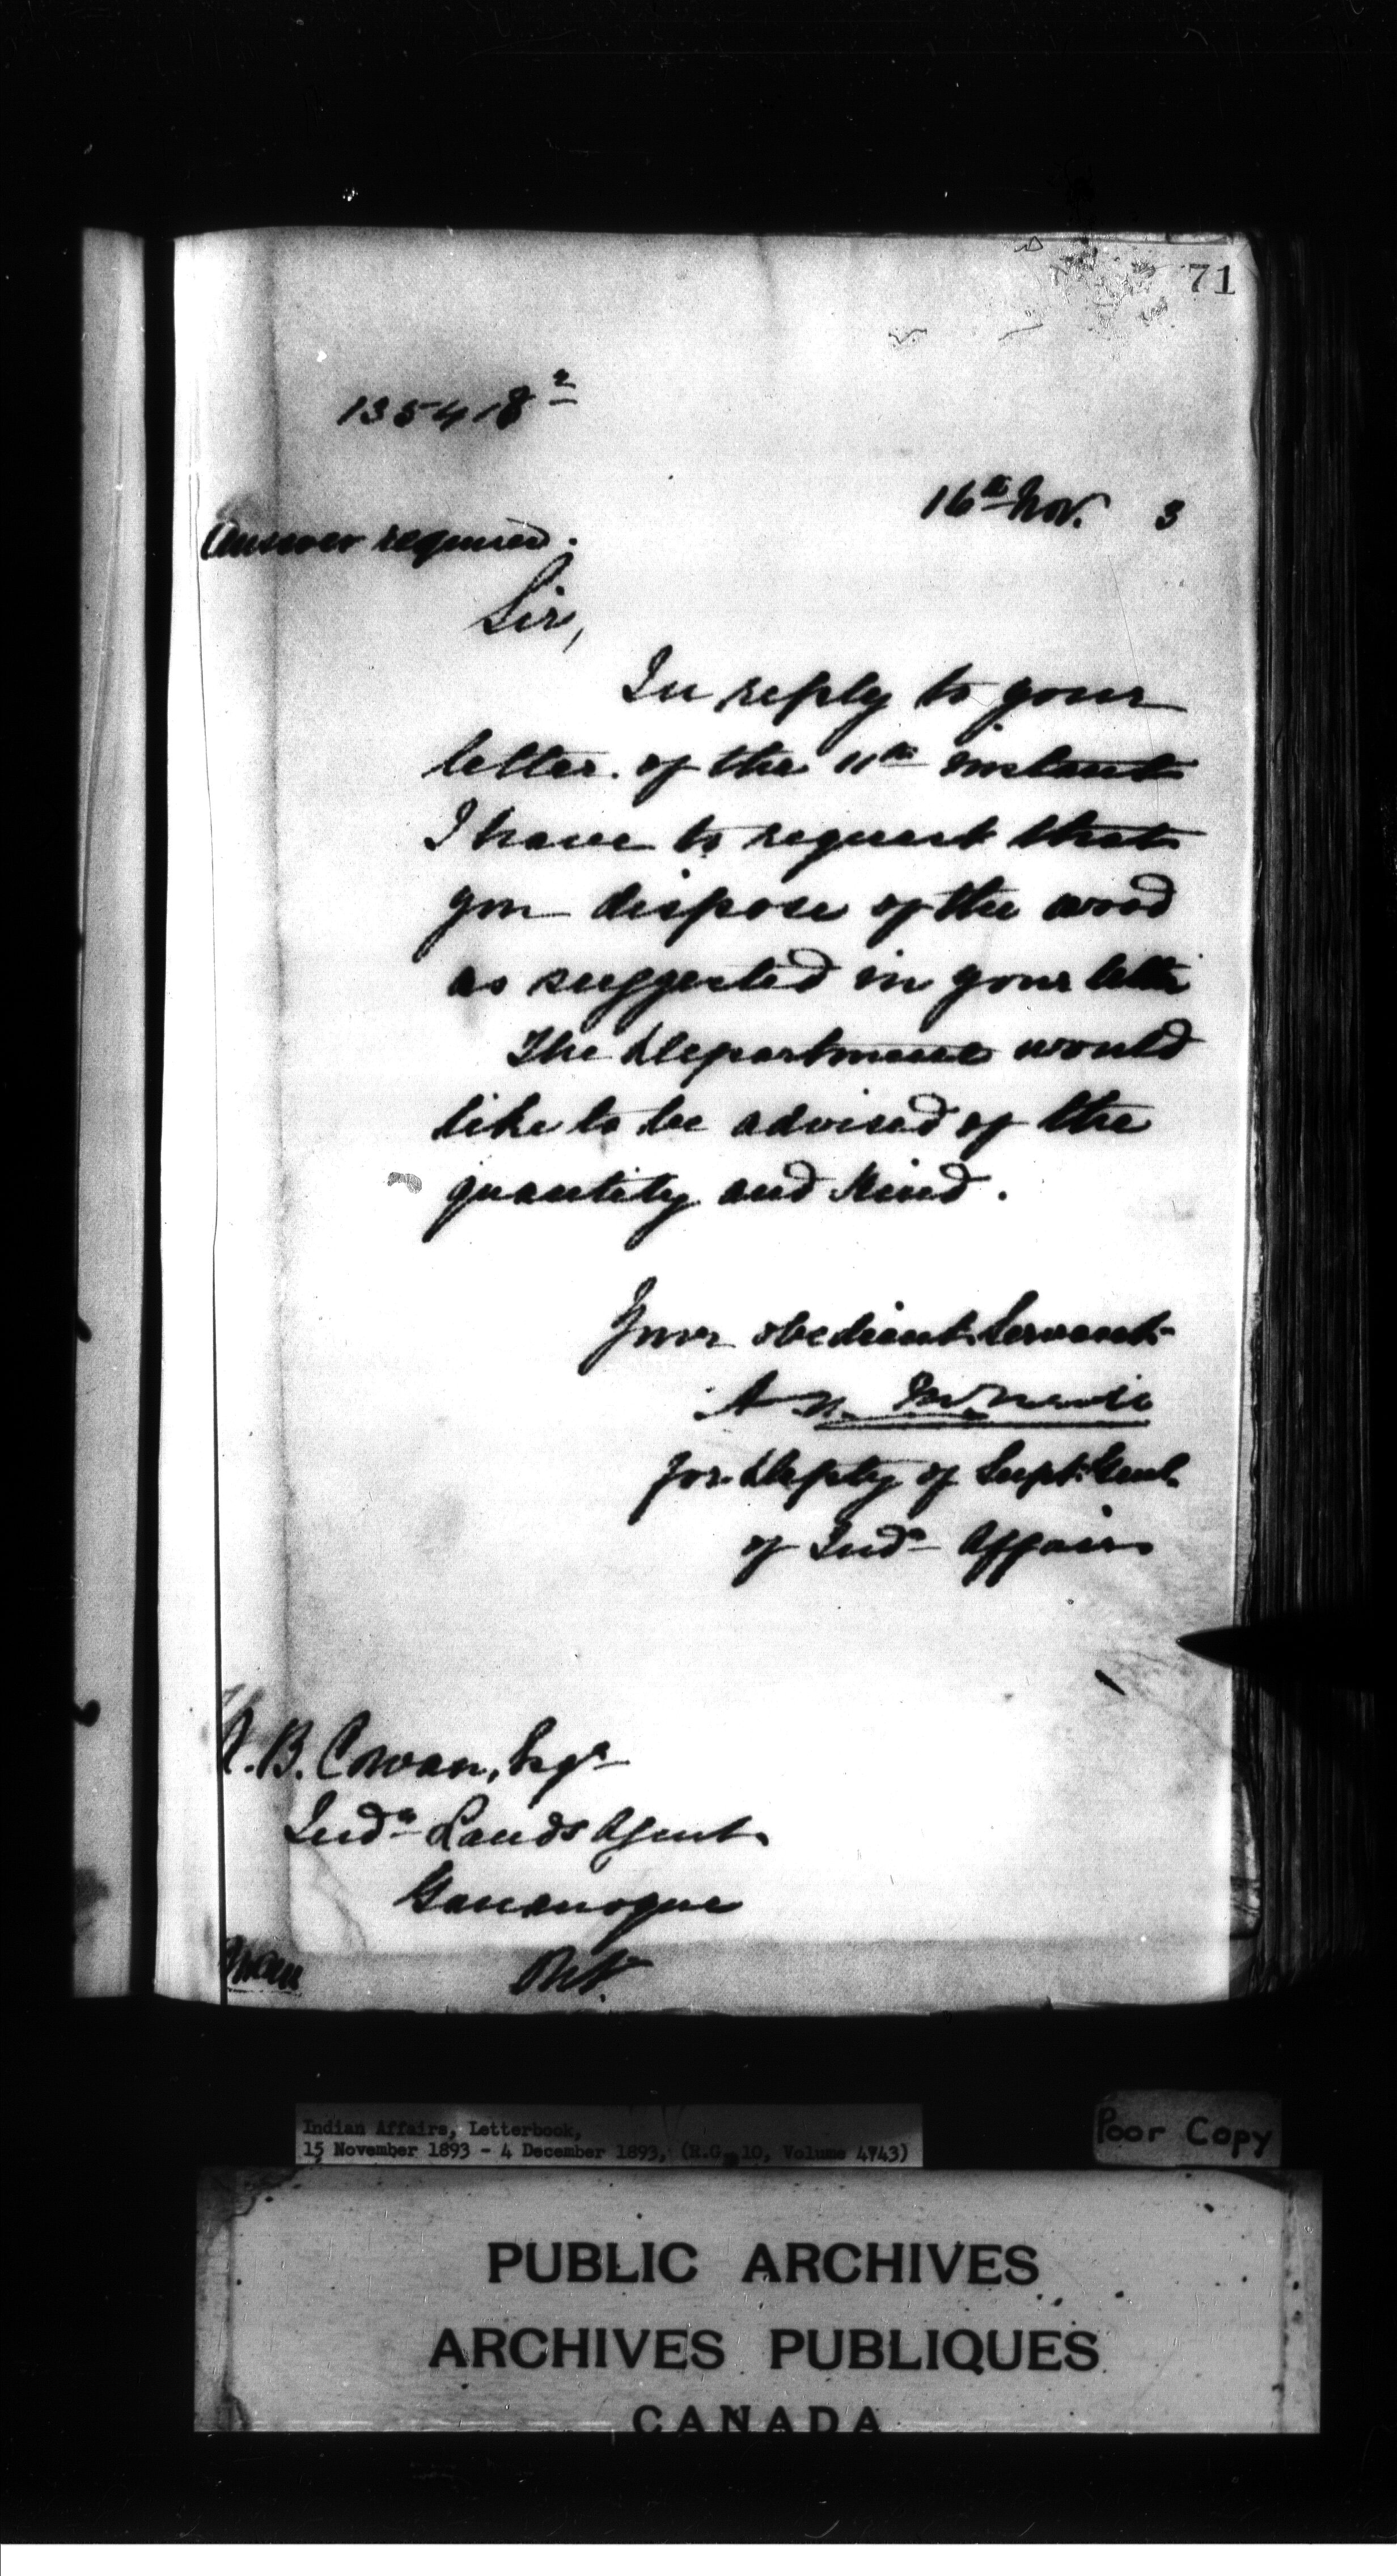 71
135418²
16th Nov. 3
Answer required.
Sir,
In reply to your
letter of the 11th instant
I have to request that
you dispose of the wood
as suggested in your letter
The Department would
like to be advised of the
quantity and kind.
Your obedient Servant
A. N. McNeill
for Depty of Supt. Genl.
of Indn Affairs
B. Cowan, Esqr
Indn Lands Agent
Gananoque
Ont.
Indian Affairs, Letterbook,
15 November 1893 - 4 December 1893, (R.G. 10, Volume 4743)
Poor Copy
PUBLIC ARCHIVES
ARCHIVES PUBLIQUES
CANADA